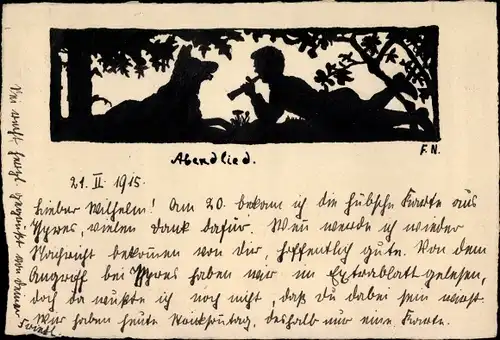 F.N.
Abendlied.
21. II. 1915.
Lieber Wilhelm! Am 20. bekam ich die hübsche Karte aus
Ypres, vielen Dank dafür. Wann werde ich wieder
Nachricht bekommen von dir, hoffentlich gute. Von dem
Angriff bei Ypres haben wir im Extrablatt gelesen,
doch da wußte ich noch nicht, daß du dabei sein warst.
Wir haben heute, deshalb nur eine Karte.
Sei recht herzl. gegrüßt von deiner
Friedl.